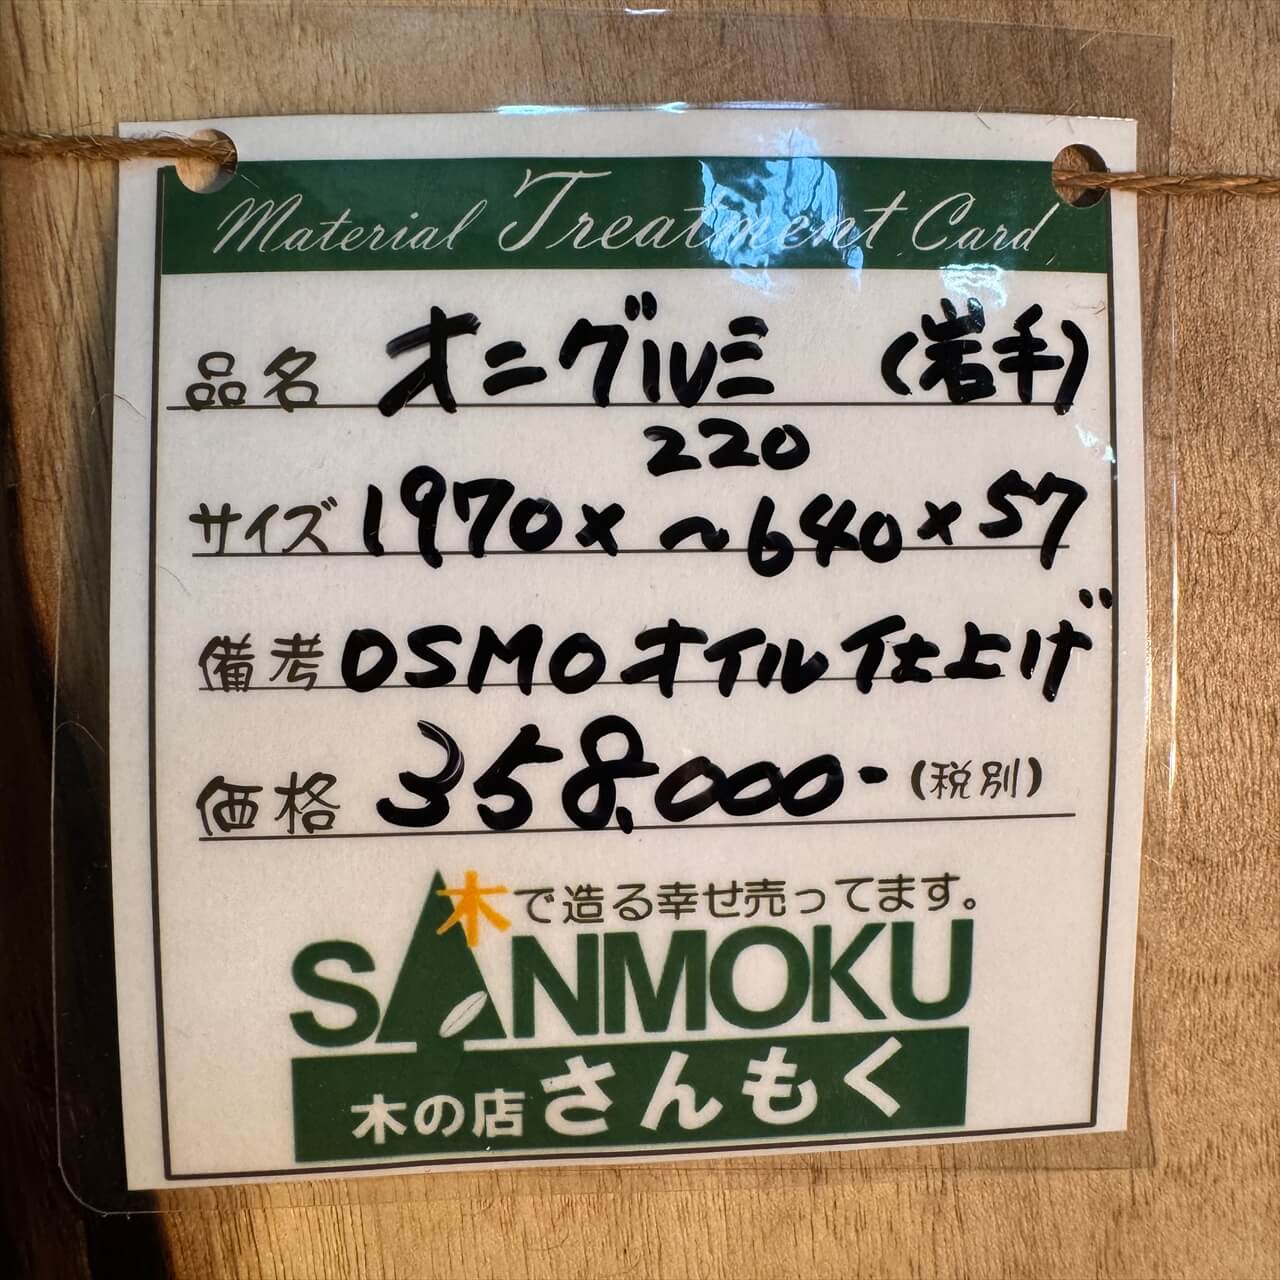 Material Treatment Card
品名 オニグルミ (岩手)
220
サイズ 1970×~640×57
備考 OSMOオイル仕上げ
価格 358,000- (税別)
木で造る幸せ売ってます。
SANMOKU
木の店さんもく